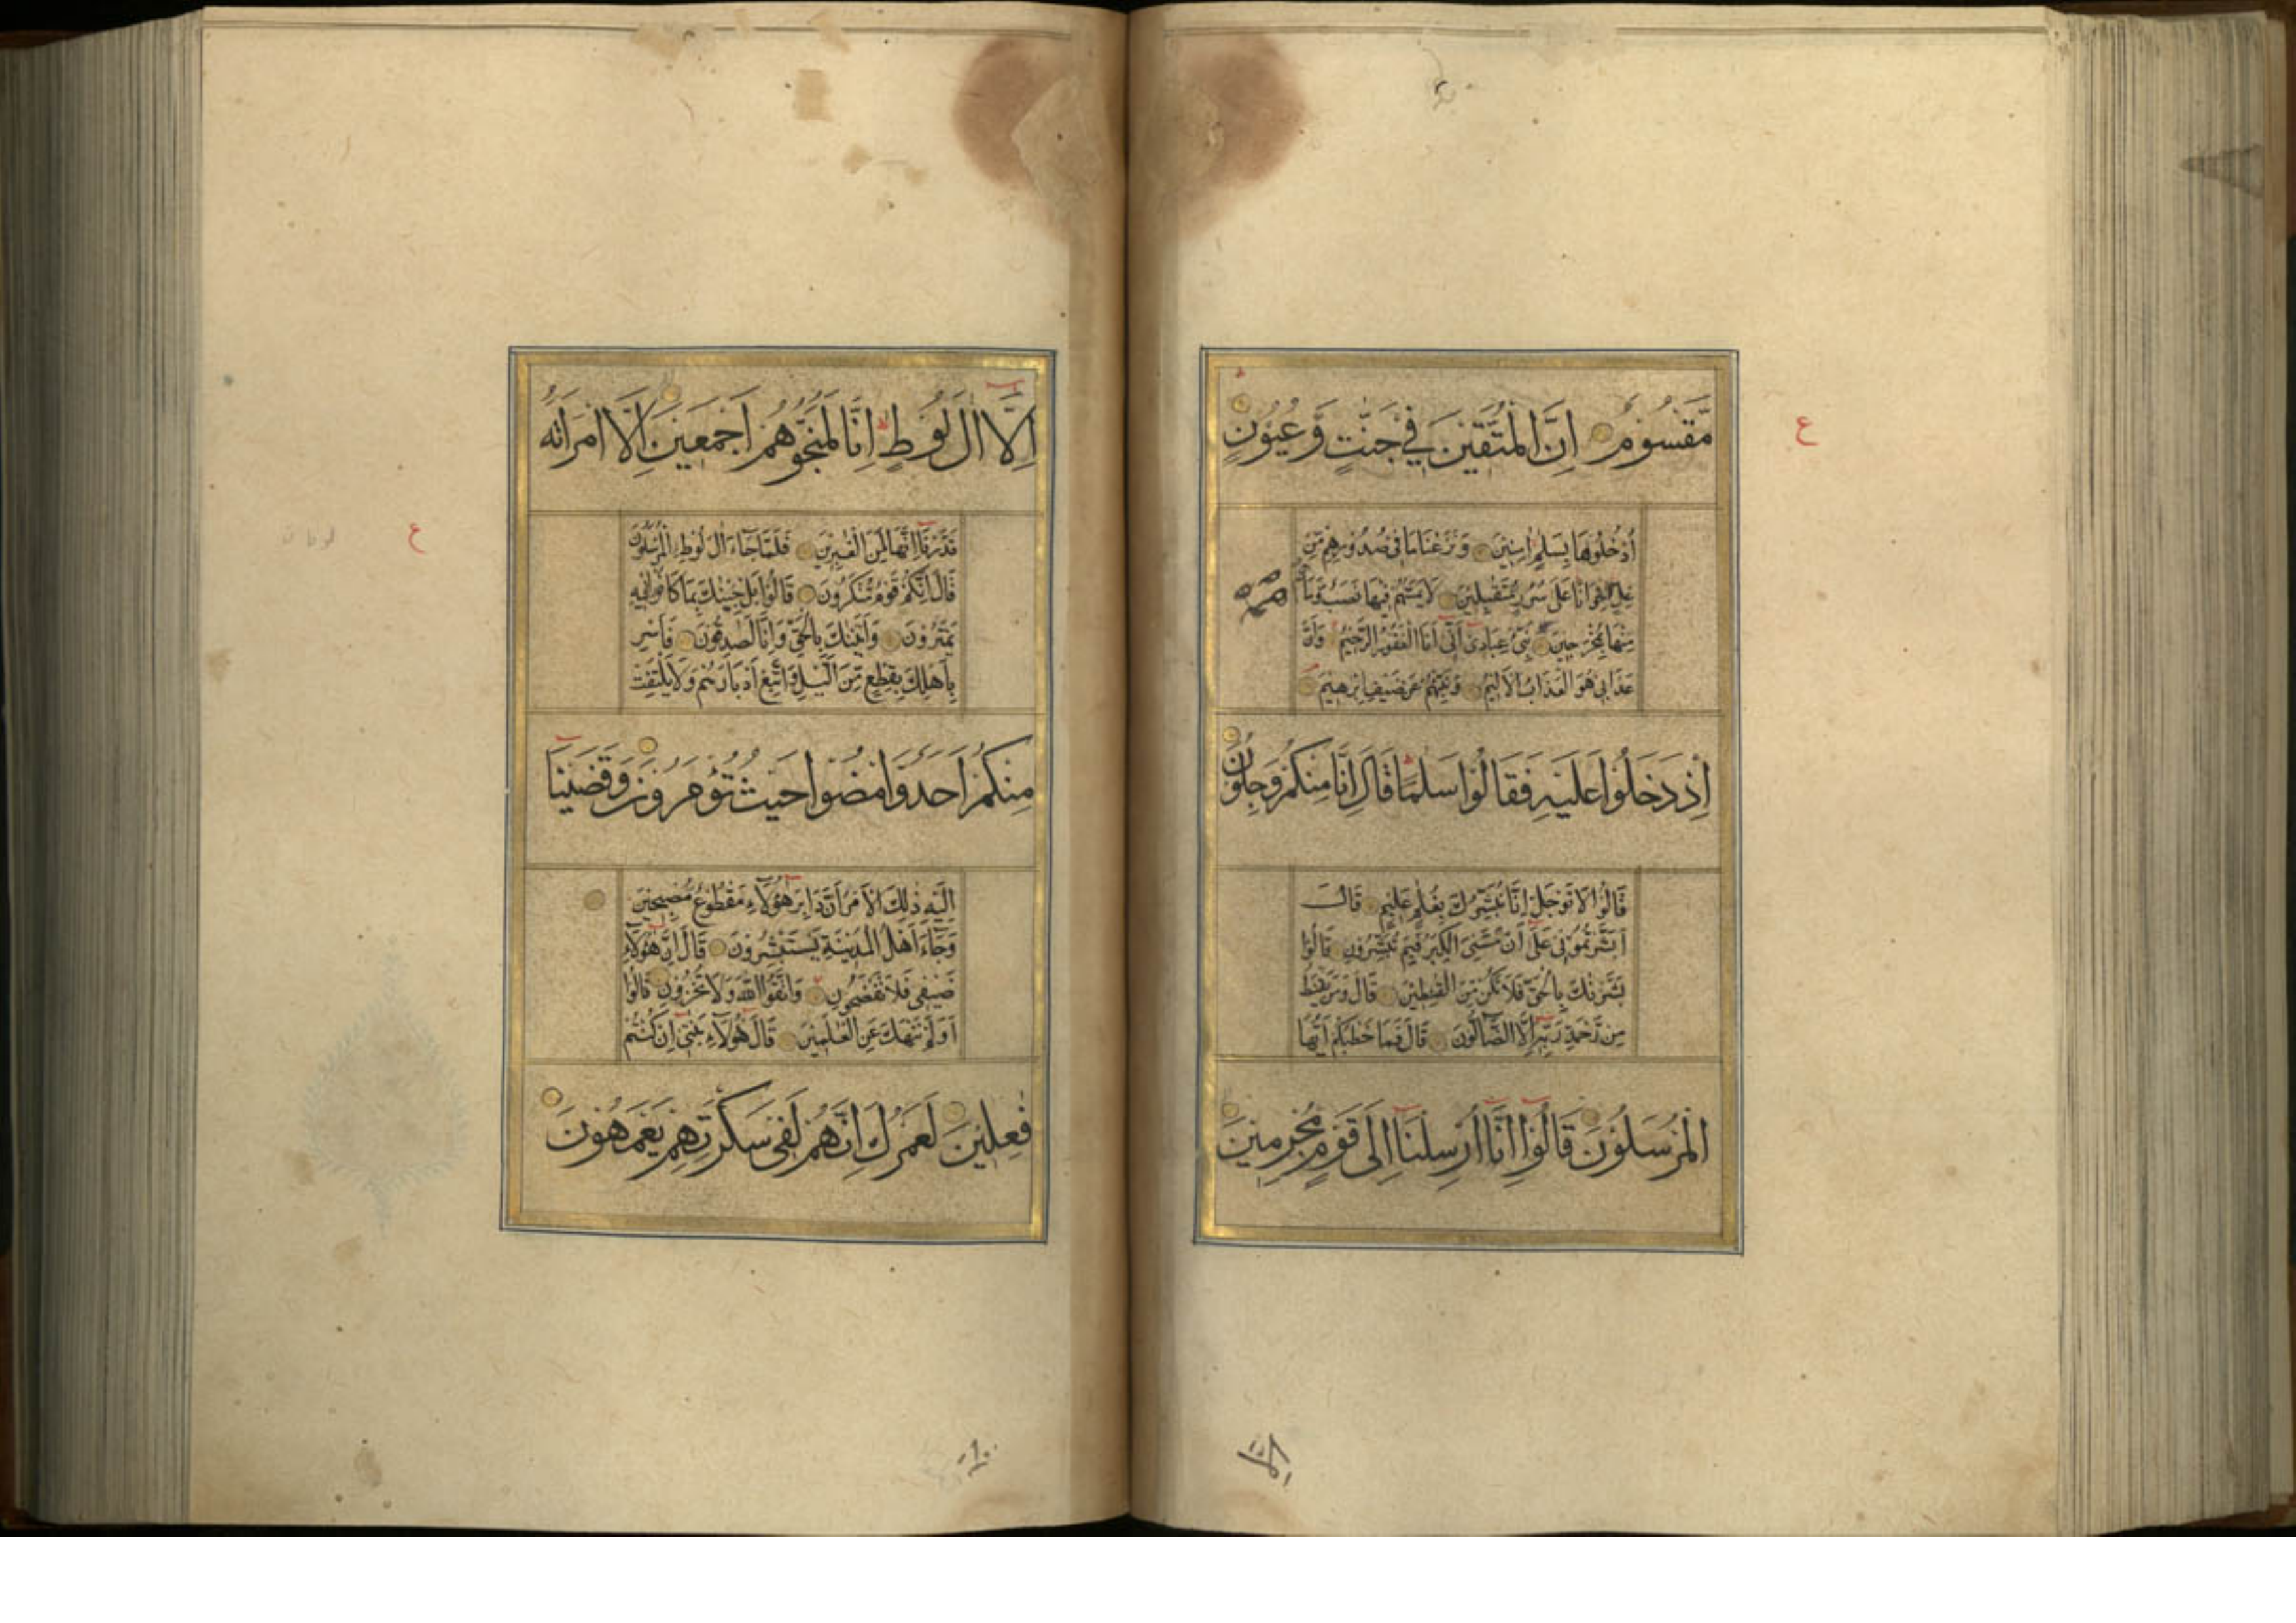 مَّقْسُومٌ اِنَّ الْمُتَّقِينَ فِي جَنّٰتٍ وَّعُيُونٍ
ع
اُدْخُلُوهَا بِسَلٰمٍ اٰمِنِينَ وَنَزَعْنَا مَا فِى صُدُورِهِمْ مِّنْ
غِلٍّ اِخْوَانًا عَلٰى سُرُرٍ مُّتَقٰبِلِينَ لَا يَمَسُّهُمْ فِيهَا نَصَبٌ وَّمَا
هُمْ
مِّنْهَا بِمُخْرَجِينَ نَبِّئْ عِبَادِى اَنِّى اَنَا الْغَفُورُ الرَّحِيمُ وَاَنَّ
عَذَابِى هُوَ الْعَذَابُ الْاَلِيمُ وَنَبِّئْهُمْ عَنْ ضَيْفِ اِبْرٰهِيمَ
اِذْ دَخَلُوا عَلَيْهِ فَقَالُوا سَلٰمًا قَالَ اِنَّا مِنْكُمْ وَجِلُونَ
قَالُوا لَا تَوْجَلْ اِنَّا نُبَشِّرُكَ بِغُلٰمٍ عَلِيمٍ قَالَ
اَبَشَّرْتُمُونِى عَلٰى اَنْ مَّسَّنِىَ الْكِبَرُ فَبِمَ تُبَشِّرُونَ قَالُوا
بَشَّرْنٰكَ بِالْحَقِّ فَلَا تَكُنْ مِّنَ الْقٰنِطِينَ قَالَ وَمَنْ يَّقْنَطُ
مِنْ رَّحْمَةِ رَبِّهِ اِلَّا الضَّالُّونَ قَالَ فَمَا خَطْبُكُمْ اَيُّهَا
الْمُرْسَلُونَ قَالُوا اِنَّا اُرْسِلْنَا اِلٰى قَوْمٍ مُّجْرِمِينَ
اِلَّا اٰلَ لُوطٍ اِنَّا لَمُنَجُّوهُمْ اَجْمَعِينَ اِلَّا امْرَاَتَهُ
ع
قَدَّرْنَا اِنَّهَا لَمِنَ الْغٰبِرِينَ فَلَمَّا جَاءَ اٰلَ لُوطِ الْمُرْسَلُونَ
قَالَ اِنَّكُمْ قَوْمٌ مُّنْكَرُونَ قَالُوا بَلْ جِئْنٰكَ بِمَا كَانُوا فِيهِ
يَمْتَرُونَ وَاَتَيْنٰكَ بِالْحَقِّ وَاِنَّا لَصٰدِقُونَ فَاَسْرِ
بِاَهْلِكَ بِقِطْعٍ مِّنَ الَّيْلِ وَاتَّبِعْ اَدْبَارَهُمْ وَلَا يَلْتَفِتْ
مِنْكُمْ اَحَدٌ وَّامْضُوا حَيْثُ تُؤْمَرُونَ وَقَضَيْنَا
اِلَيْهِ ذٰلِكَ الْاَمْرَ اَنَّ دَابِرَ هٰؤُلَاءِ مَقْطُوعٌ مُّصْبِحِينَ
وَجَاءَ اَهْلُ الْمَدِينَةِ يَسْتَبْشِرُونَ قَالَ اِنَّ هٰؤُلَاءِ
ضَيْفِى فَلَا تَفْضَحُونِ وَاتَّقُوا اللّٰهَ وَلَا تُخْزُونِ قَالُوا
اَوَلَمْ نَنْهَكَ عَنِ الْعٰلَمِينَ قَالَ هٰؤُلَاءِ بَنٰتِى اِنْ كُنْتُمْ
فٰعِلِينَ لَعَمْرُكَ اِنَّهُمْ لَفِى سَكْرَتِهِمْ يَعْمَهُونَ